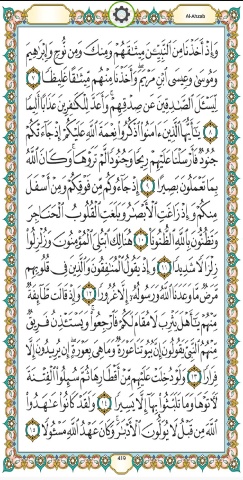 Al-Ahzab
وَإِذْ أَخَذْنَا مِنَ ٱلنَّبِيِّـۧنَ مِيثَـٰقَهُمْ وَمِنكَ وَمِن نُّوحٍ وَإِبْرَٰهِيمَ
وَمُوسَىٰ وَعِيسَى ٱبْنِ مَرْيَمَ ۖ وَأَخَذْنَا مِنْهُم مِّيثَـٰقًا غَلِيظًا ٧
لِّيَسْـَٔلَ ٱلصَّـٰدِقِينَ عَن صِدْقِهِمْ ۚ وَأَعَدَّ لِلْكَـٰفِرِينَ عَذَابًا أَلِيمًا
٨ يَـٰٓأَيُّهَا ٱلَّذِينَ ءَامَنُوا۟ ٱذْكُرُوا۟ نِعْمَةَ ٱللَّهِ عَلَيْكُمْ إِذْ جَآءَتْكُمْ
جُنُودٌ فَأَرْسَلْنَا عَلَيْهِمْ رِيحًا وَجُنُودًا لَّمْ تَرَوْهَا ۚ وَكَانَ ٱللَّهُ
بِمَا تَعْمَلُونَ بَصِيرًا ٩ إِذْ جَآءُوكُم مِّن فَوْقِكُمْ وَمِنْ أَسْفَلَ
مِنكُمْ وَإِذْ زَاغَتِ ٱلْأَبْصَـٰرُ وَبَلَغَتِ ٱلْقُلُوبُ ٱلْحَنَاجِرَ
وَتَظُنُّونَ بِٱللَّهِ ٱلظُّنُونَا۠ ١٠ هُنَالِكَ ٱبْتُلِىَ ٱلْمُؤْمِنُونَ وَزُلْزِلُوا۟
زِلْزَالًا شَدِيدًا ١١ وَإِذْ يَقُولُ ٱلْمُنَـٰفِقُونَ وَٱلَّذِينَ فِى قُلُوبِهِم
مَّرَضٌ مَّا وَعَدَنَا ٱللَّهُ وَرَسُولُهُۥٓ إِلَّا غُرُورًا ١٢ وَإِذْ قَالَت طَّآئِفَةٌ
مِّنْهُمْ يَـٰٓأَهْلَ يَثْرِبَ لَا مُقَامَ لَكُمْ فَٱرْجِعُوا۟ ۚ وَيَسْتَـْٔذِنُ فَرِيقٌ
مِّنْهُمُ ٱلنَّبِىَّ يَقُولُونَ إِنَّ بُيُوتَنَا عَوْرَةٌ وَمَا هِىَ بِعَوْرَةٍ ۖ إِن يُرِيدُونَ إِلَّا
فِرَارًا ١٣ وَلَوْ دُخِلَتْ عَلَيْهِم مِّنْ أَقْطَارِهَا ثُمَّ سُئِلُوا۟ ٱلْفِتْنَةَ
لَـَٔاتَوْهَا وَمَا تَلَبَّثُوا۟ بِهَآ إِلَّا يَسِيرًا ١٤ وَلَقَدْ كَانُوا۟ عَـٰهَدُوا۟
ٱللَّهَ مِن قَبْلُ لَا يُوَلُّونَ ٱلْأَدْبَـٰرَ ۚ وَكَانَ عَهْدُ ٱللَّهِ مَسْـُٔولًا ١٥
419